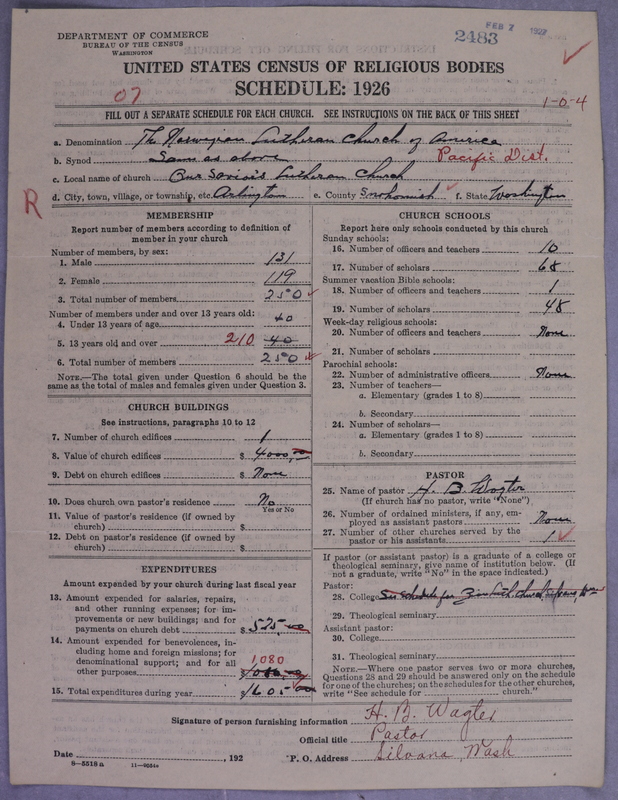 DEPARTMENT OF COMMERCE
BUREAU OF THE CENSUS
WASHINGTON
FEB 7 1927
2483
UNITED STATES CENSUS OF RELIGIOUS BODIES
SCHEDULE: 1926
07
1-0-4
FILL OUT A SEPARATE SCHEDULE FOR EACH CHURCH. SEE INSTRUCTIONS ON THE BACK OF THIS SHEET
a. Denomination The Norwegian Lutheran Church of America
b. Synod Same as above Pacific Dist.
c. Local name of church Our Savior's Lutheran Church
d. City, town, village, or township, etc. Arlington e. County Snohomish f. State Washington
R
MEMBERSHIP
Report number of members according to definition of
member in your church
Number of members, by sex:
1. Male 131
2. Female 119
3. Total number of members 250
Number of members under and over 13 years old:
4. Under 13 years of age 40
5. 13 years old and over 210 40
6. Total number of members 250
NOTE.—The total given under Question 6 should be
same as the total of males and females given under Question 3.
CHURCH BUILDINGS
See instructions, paragraphs 10 to 12
7. Number of church edifices 1
8. Value of church edifices $ 4000,00
9. Debt on church edifices $ None
10. Does church own pastor's residence No
Yes or No
11. Value of pastor's residence (if owned by
church) $
12. Debt on pastor's residence (if owned by
church) $
EXPENDITURES
Amount expended by your church during last fiscal year
13. Amount expended for salaries, repairs,
and other running expenses; for im-
provements or new buildings; and for
payments on church debt $ 525,00
14. Amount expended for benevolences, in-
cluding home and foreign missions; for
denominational support; and for all
other purposes 1080
1080,00
15. Total expenditures during year $1605,00
CHURCH SCHOOLS
Report here only schools conducted by this church
Sunday schools:
16. Number of officers and teachers 10
17. Number of scholars 68
Summer vacation Bible schools:
18. Number of officers and teachers 1
19. Number of scholars 48
Week-day religious schools:
20. Number of officers and teachers None
21. Number of scholars
Parochial schools:
22. Number of administrative officers None
23. Number of teachers—
a. Elementary (grades 1 to 8)
b. Secondary
24. Number of scholars—
a. Elementary (grades 1 to 8)
b. Secondary
PASTOR
25. Name of pastor H. B. Wagter
(If church has no pastor, write "None")
26. Number of ordained ministers, if any, em-
ployed as assistant pastors None
27. Number of other churches served by the
pastor or his assistants 1
If pastor (or assistant pastor) is a graduate of a college or
theological seminary, give name of institution below. (If
not a graduate, write "No" in the space indicated.)
Pastor:
28. College See schedule for Zion Luth church, Silvana, Wash
29. Theological seminary
Assistant pastor:
30. College
31. Theological seminary
NOTE.—Where one pastor serves two or more churches,
Questions 28 and 29 should be answered only on the schedule
for one of the churches; on the schedules for the other churches,
write "See schedule for church."
Signature of person furnishing information H. B. Wagter
Official title Pastor
Date , 192 P. O. Address Silvana, Wash
8—5518a 11—9054a